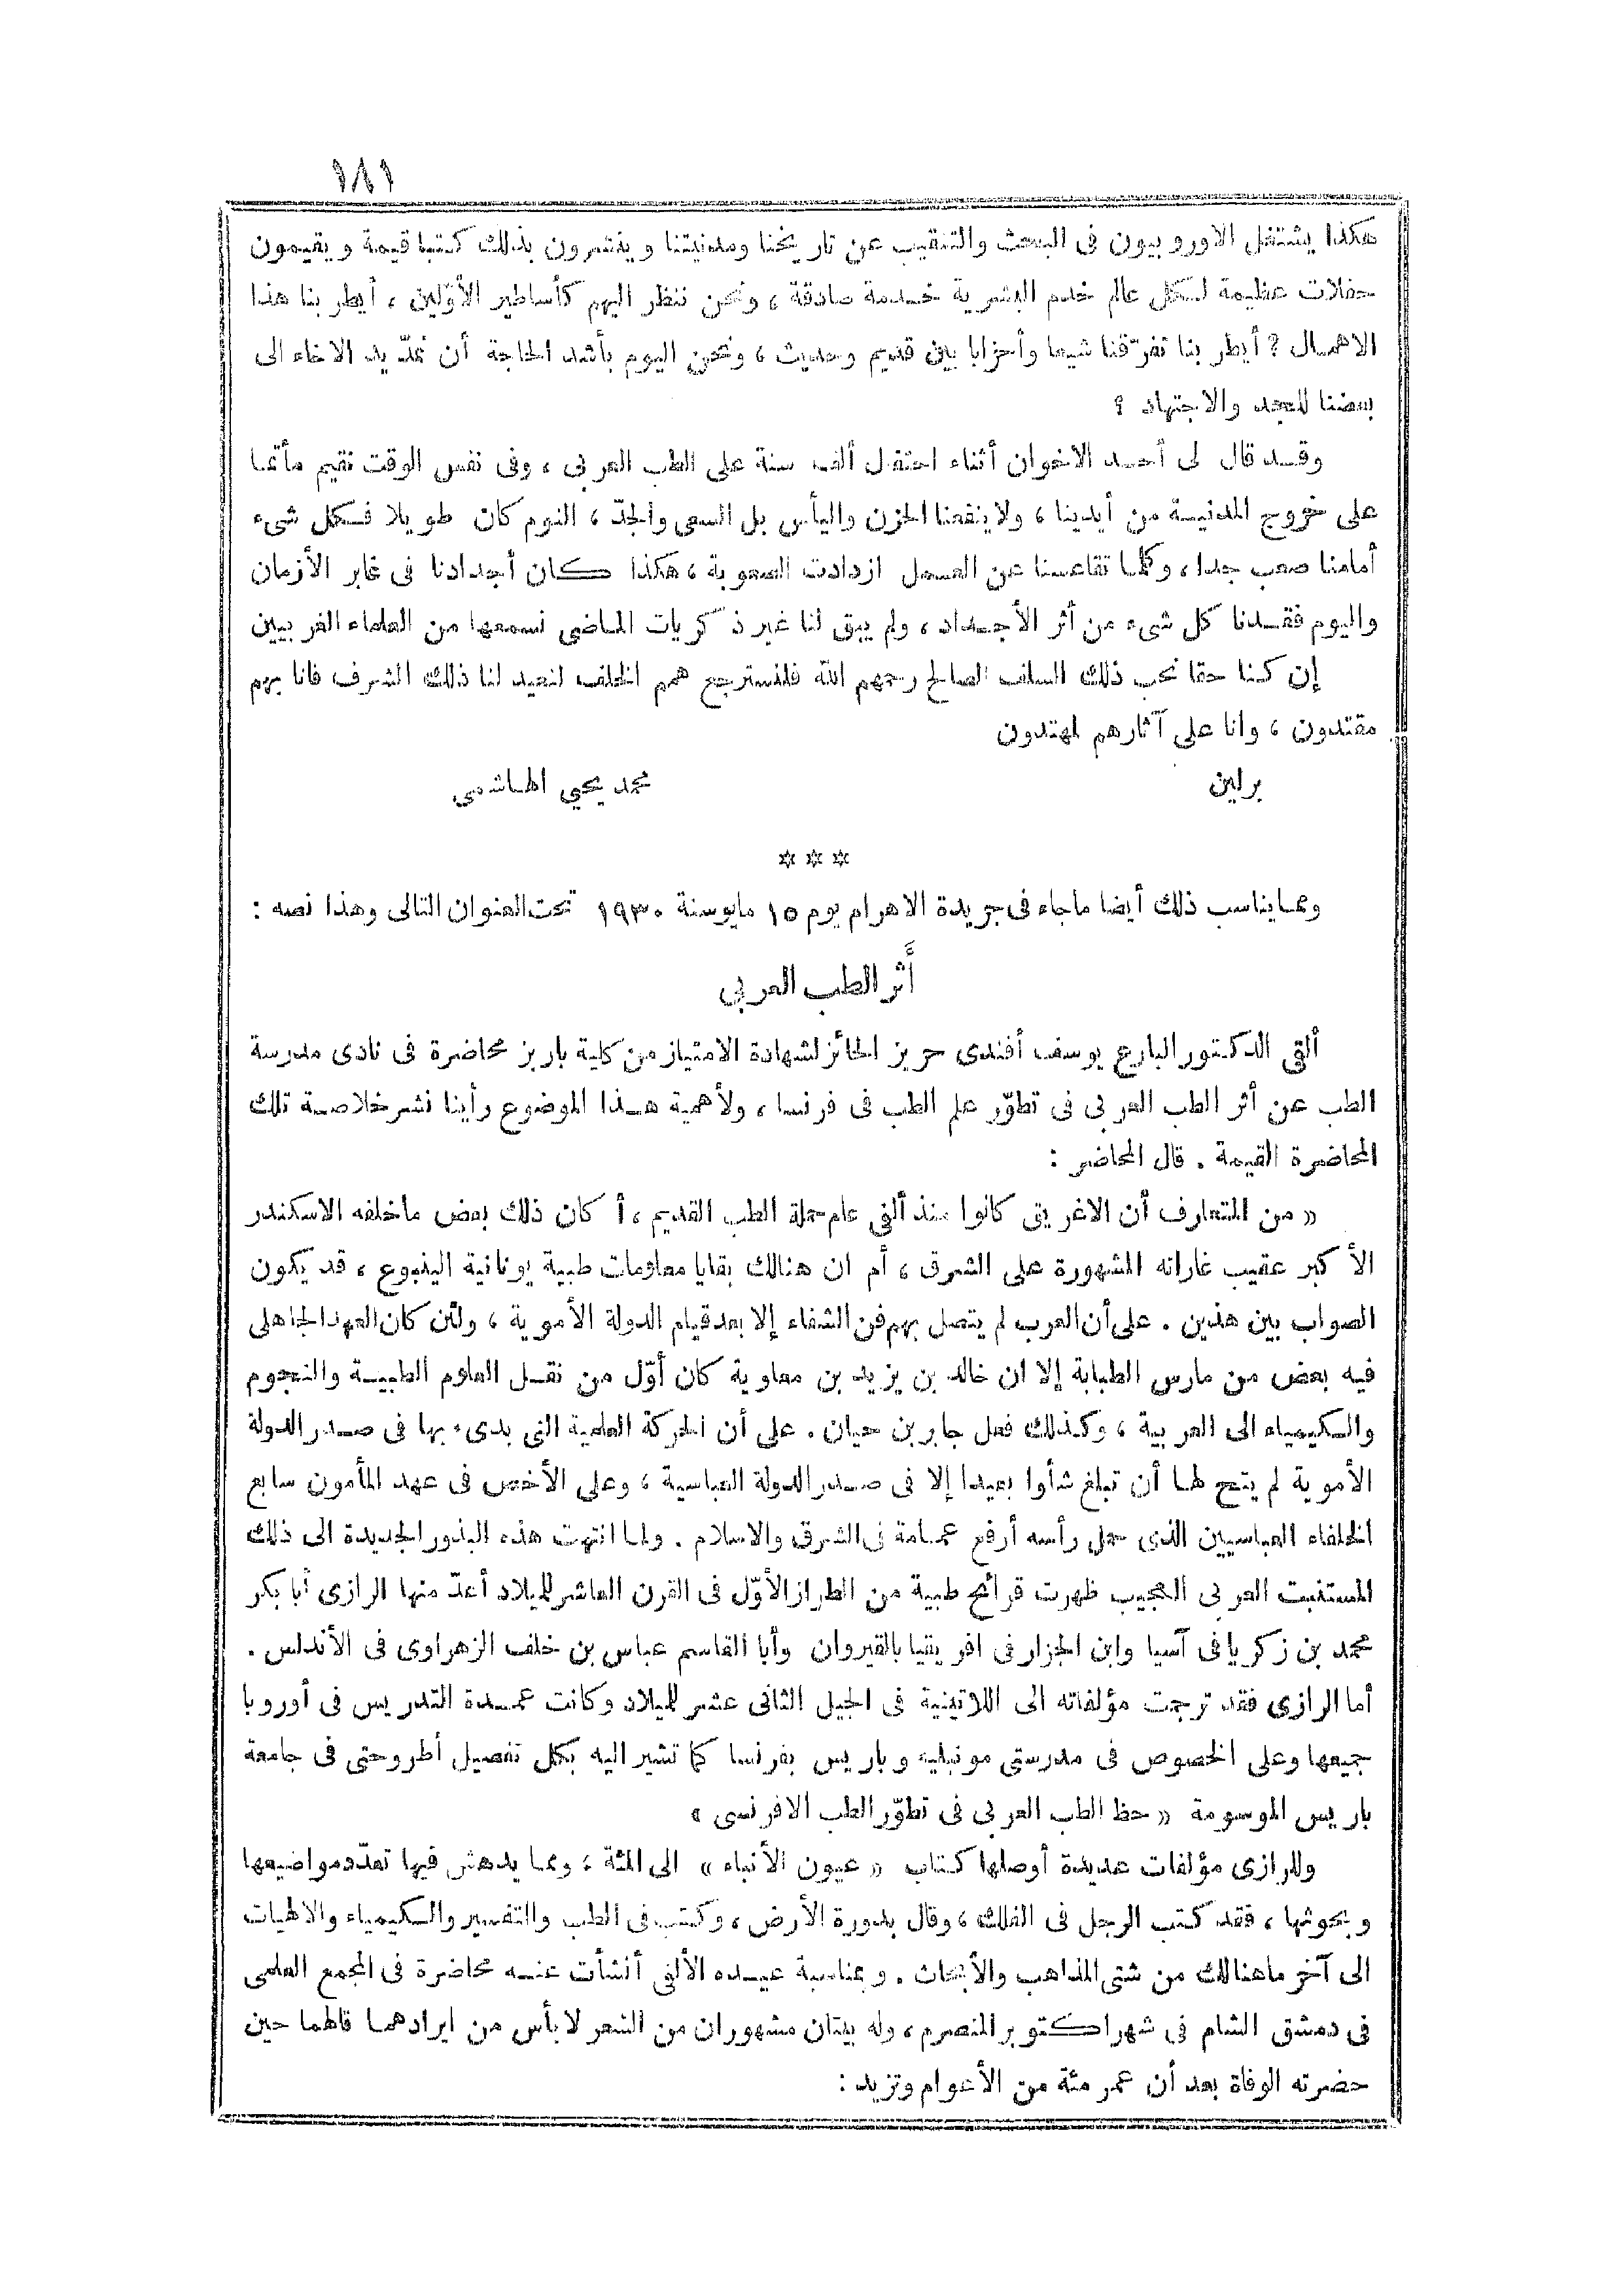 ١٨١
هكذا يشتغل الاوروبيون فى البحث والتنقيب عن تاريخنا ومدنيتنا وينشرون بذلك كتبا قيمة ويقيمون
حفلات عظيمة لكل عالم خدم البشرية خدمة صادقة ، ونحن ننظر اليهم كأساطير الأوّلين ، أيطر بنا هذا
الاهمال ? أيطر بنا تفرّقنا شيعا وأحزابا بين قديم وحديث ، ونحن اليوم بأشد الحاجة أن نمدّ يد الاخاء الى
بعضنا للجد والاجتهاد ؟
وقد قال لى أحد الاخوان أثناء احتفل ألف سنة على الطب العربى ، وفى نفس الوقت نقيم مأتما
على خروج المدنية من أيدينا ، ولا ينفعنا الحزن واليأس بل السعى والجدّ ، النوم كان طويلا فكل شىء
أمامنا صعب جدا ، وكلما تقاعسنا عن العمل ازدادت الصعوبة ، هكذا كان أجدادنا فى غابر الأزمان
واليوم فقدنا كل شىء من أثر الأجداد ، ولم يبق لنا غير ذكريات الماضى نسمعها من العلماء الغربيين
إن كنا حقا نحب ذلك السلف الصالح رحمهم الله فلنسترجع همم الخلف لنعيد لنا ذلك الشرف فانا بهم
مقتدون ، وانا على آثارهم لمهتدون
برلين محمد يحيى الهاشمى
* * *
ومما يناسب ذلك أيضا ماجاء فى جريدة الاهرام يوم ١٥ مايو سنة ١٩٣٠ تحت العنوان التالى وهذا نصه :
أَثر الطب العربى
ألقى الدكتور البارع يوسف أفندى حريز الحائز لشهادة الامتياز من كلية باريز محاضرة فى نادى مدرسة
الطب عن أثر الطب العربى فى تطوّر علم الطب فى فرنسا ، ولأهمية هذا الموضوع رأينا نشر خلاصة تلك
المحاضرة القيمة . قال المحاضر :
« من المتعارف أن الاغريق كانوا منذ ألفى عام حملة الطب القديم ، أكان ذلك بعض ماخلفه الاسكندر
الأكبر عقيب غاراته المشهورة على الشرق ، أم ان هنالك بقايا معلومات طبية يونانية الينبوع ، قد يكون
الصواب بين هذين . على أن العرب لم يتصل بهم فن الشفاء إلا بعد قيام الدولة الأموية ، ولئن كان العهد الجاهلى
فيه بعض من مارس الطبابة إلا ان خالد بن يزيد بن معاوية كان أوّل من نقل العلوم الطبية والنجوم
والكيمياء الى العربية ، وكذلك فعل جابر بن حيان . على أن الحركة العلمية التى بدىء بها فى صدر الدولة
الأموية لم يتح لها أن تبلغ شأوا بعيدا إلا فى صدر الدولة العباسية ، وعلى الأخص فى عهد المأمون سابع
الخلفاء العباسيين الذى حمل رأسه أرفع عمامة فى الشرق والاسلام . ولما انتهت هذه البذور الجديدة الى ذلك
المستنبت العربى العجيب ظهرت قرائح طبية من الطراز الأوّل فى القرن العاشر للميلاد أعدّ منها الرازى أبا بكر
محمد بن زكريا فى آسيا وابن الجزار فى افريقيا بالقيروان وأبا القاسم عباس بن خلف الزهراوى فى الأندلس .
أما الرازى فقد ترجمت مؤلفاته الى اللاتينية فى الجيل الثانى عشر للميلاد وكانت عمدة التدريس فى أوروبا
جميعها وعلى الخصوص فى مدرستى مونبليه وباريس بفرنسا كما تشير اليه بكل تفصيل أطروحتى فى جامعة
باريس الموسومة « حظ الطب العربى فى تطوّر الطب الافرنسى »
وللرازى مؤلفات عديدة أوصلها كتاب « عيون الأنباء » الى المئة ، ومما يدهش فيها تعدّد مواضيعها
وبحوثها ، فقد كتب الرجل فى الفلك ، وقال بدورة الأرض ، وكتب فى الطب والتفسير والكيمياء والالهيات
الى آخر ماهنالك من شتى المذاهب والأبحاث . وبمناسبة عيده الألفى أنشأت عنه محاضرة فى المجمع العلمى
فى دمشق الشام فى شهر اكتوبر المنصرم ، وله بيتان مشهوران من الشعر لا بأس من ايرادهما قالهما حين
حضرته الوفاة بعد أن عمر مئة من الأعوام وتزيد :